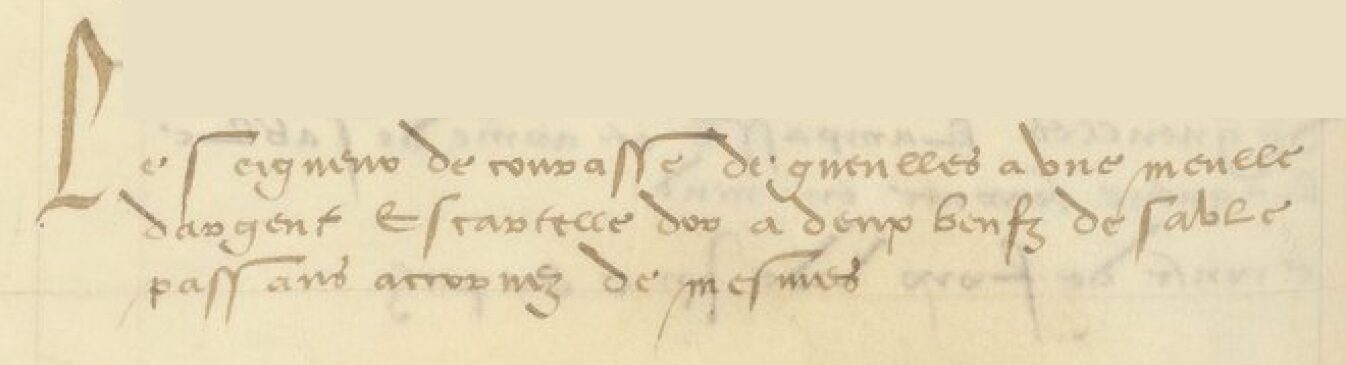 Le seigneur de courasse de gueulles a une meulle
dargent Escartelle dor a deux beufz de sable
passans accornez de mesmes